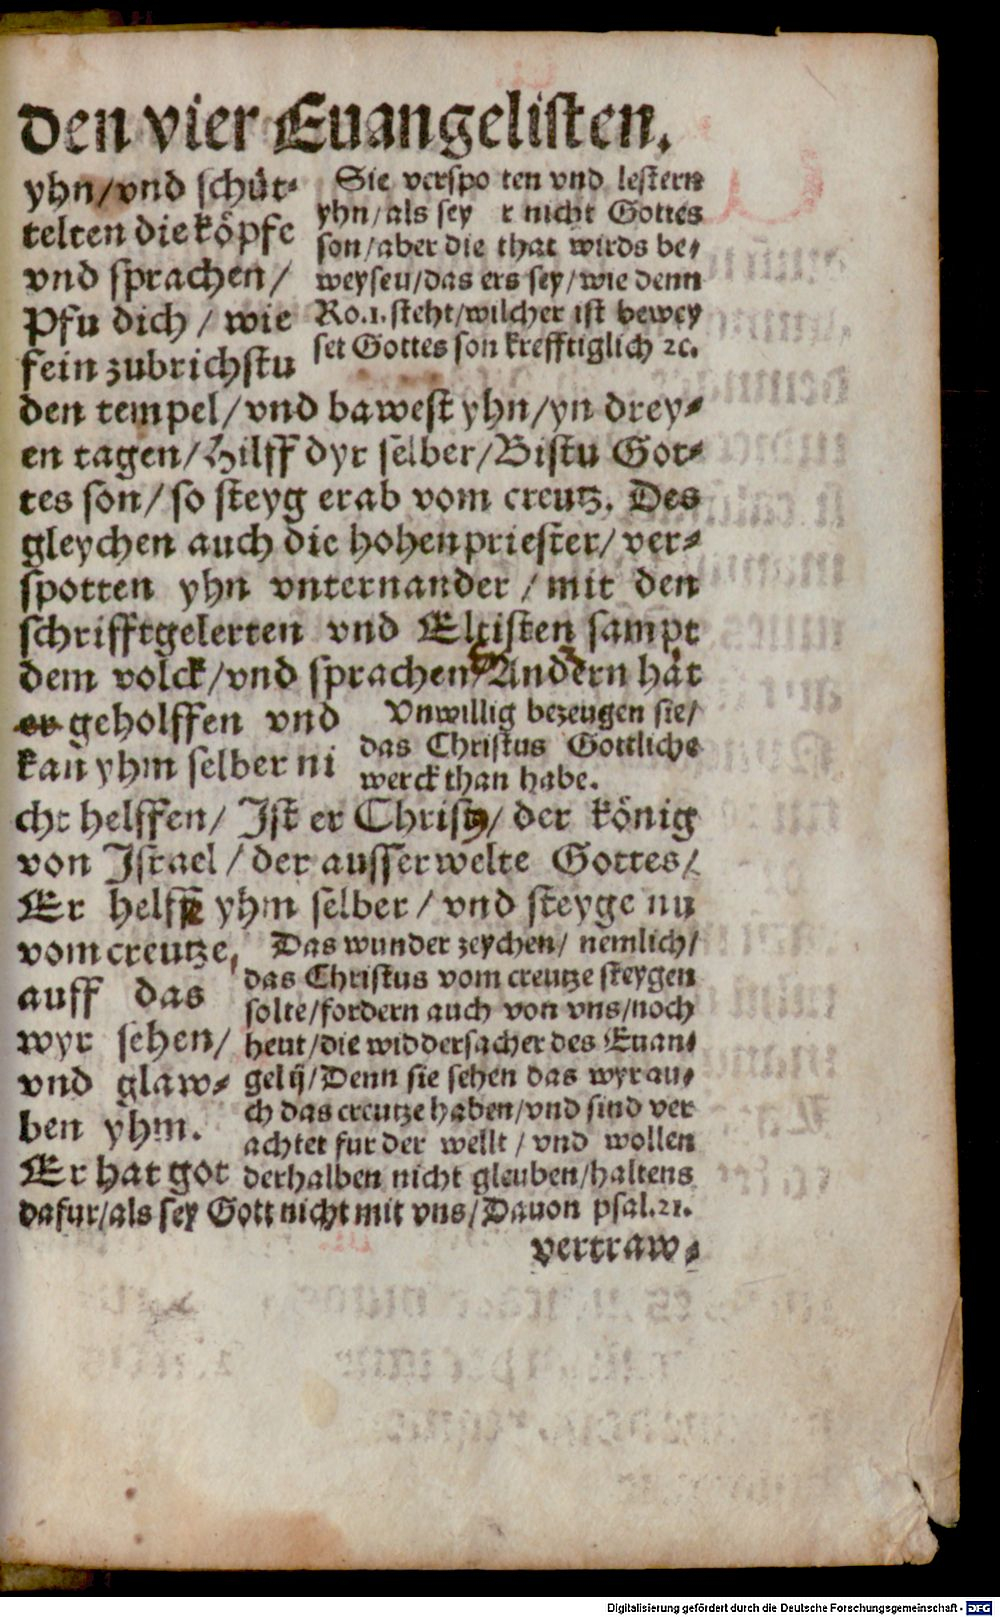 den vier Euangelisten.
yhn/vnd schüt⸗
telten die köpfe
vnd sprachen/
Pfu dich/ wie
fein zubrichstu
Sie verspo ten vnd lestern
yhn/als sey r nicht Gottes
son/aber die that wirds be⸗
weysen/das ers sey/wie denn
Ro.1.steht/wilcher ist bewey
set Gottes son krefftiglich ꝛc.
den tempel/vnd bawest yhn/yn drey⸗
en tagen/Hilff dyr selber/Bistu Got⸗
tes son/so steyg erab vom creutz. Des
gleychen auch die hohenpriester/ ver⸗
spotten yhn vnternander/mit den
schrifftgelerten vnd Eltisten sampt
dem volck/vnd sprachen/Andern hat
er geholffen vnd
kan yhm selber ni
Vnwillig bezeugen sie/
das Christus Gottliche
werck than habe.
cht helffen/ Ist er Christ/ der könig
von Israel/der ausserwelte Gottes/
Er helff yhm selber/ vnd steyge nu
vom creutze,
auff das
wyr sehen/
vnd glaw⸗
ben yhm.
Er hat got
Das wunder zeychen/ nemlich/
das Christus vom creutze steygen
solte/fordern auch von vns/noch
heut/die widdersacher des Euan⸗
gelij/Denn sie sehen das wyr au⸗
ch das creutze haben/vnd sind ver
achtet fur der wellt/ vnd wollen
derhalben nicht gleuben/haltens
dafur/als sey Gott nicht mit vns/Dauon psal.21.
vertraw⸗
Digitalisierung gefördert durch die Deutsche Forschungsgemeinschaft - DFG